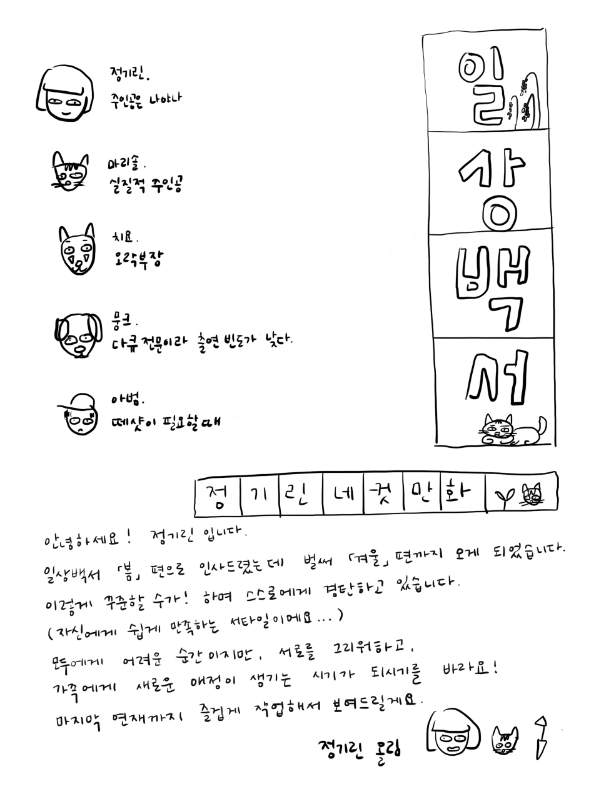 일상백서
정기린.
주인공은 나야나
마리솔.
실질적 주인공
치요.
오락부장
뭉크.
다큐전문이라 출연 빈도가 낮다.
아범.
떼샷이 필요할때
정기린네컷만화
안녕하세요! 정기린 입니다.
일상백서 「봄」편으로 인사드렸는데 벌써 「겨울」편까지 오게 되었습니다.
이렇게 꾸준할 수가! 하며 스스로에게 경탄하고 있습니다.
(자신에게 쉽게 만족하는 서타일이에요...)
모두에게 어려운 순간이지만, 서로를 그리워하고,
가족에게 새로운 애정이 생기는 시기가 되시기를 바라요!
마지막 연재까지 즐겁게 작업해서 보여드릴게요.
정기린 올림